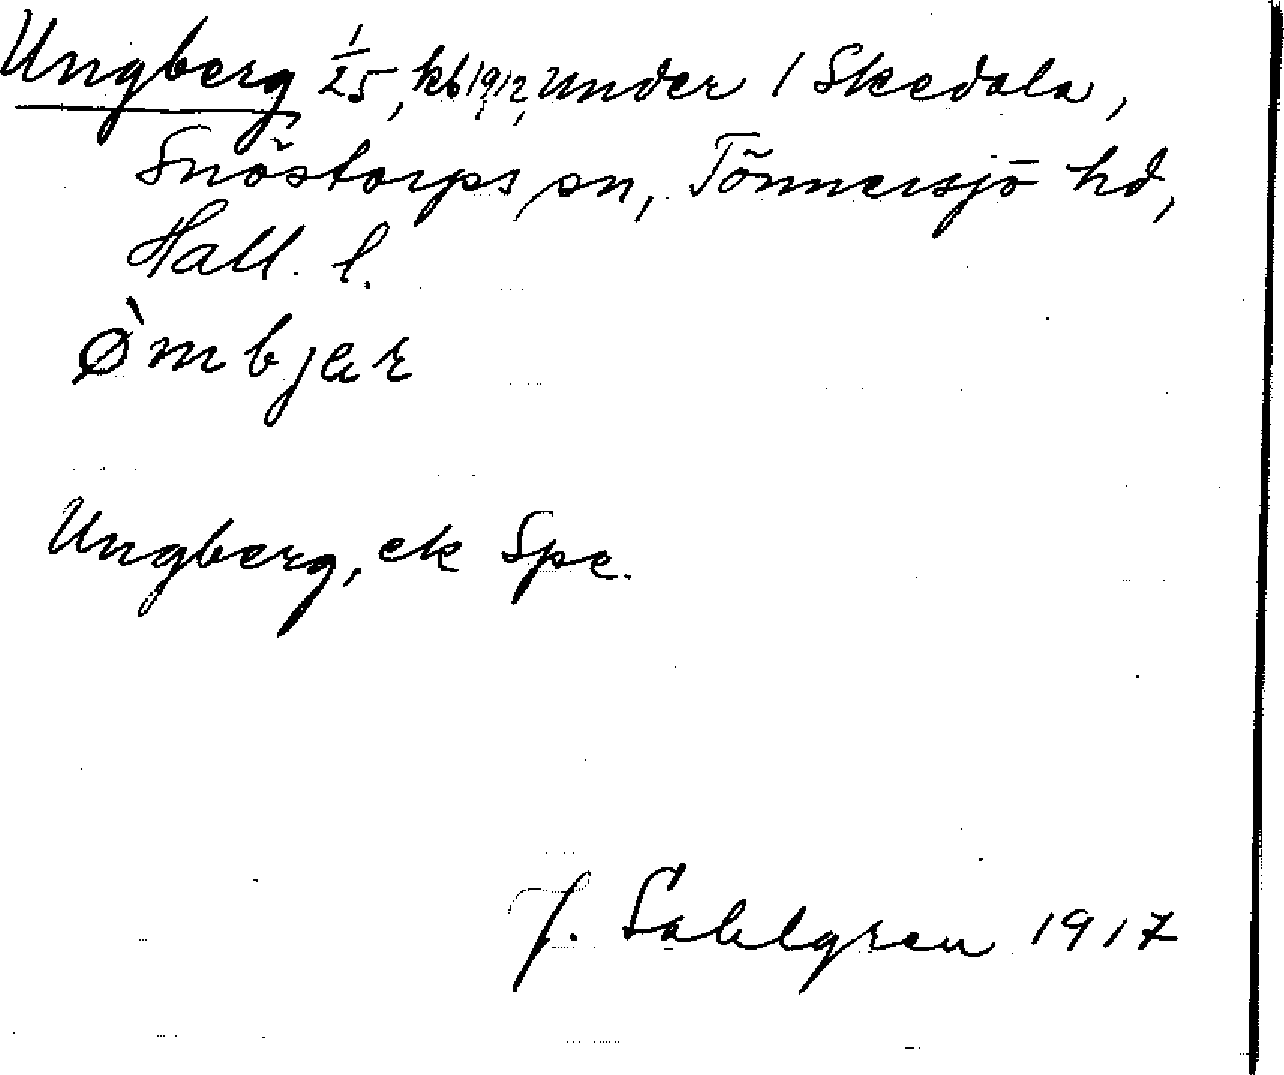 Ungberg 1/25, kb 1912, under 1 Skedala,
Snöstorps sn, Tönnersjö hd,
Hall. l.
Ø̀mbjär
Ungberg, ek Spe.
J. Sahlgren 1917